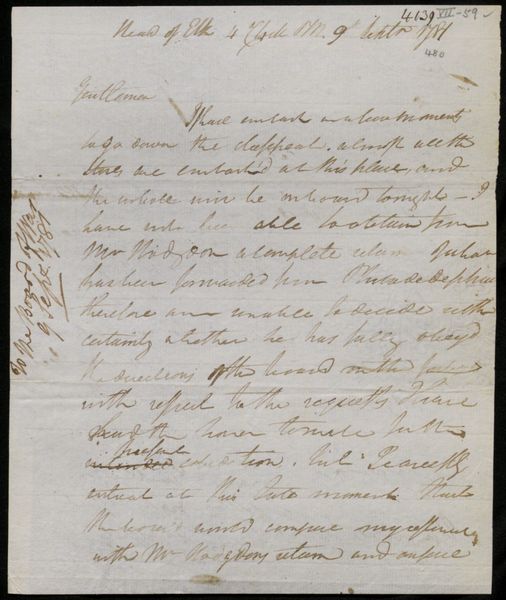 4139 VII-59
480
Head of Elk 4 Clock PM. 9th Septr 1781
Gentlemen
I shall embark in a few moments
to go down the Chesapeak. almost all the
stores are embark'd at this place, and
the whole will be on board tonight – I
have not been able to obtain from
Mr Hodgdon a complete return of what
has been forwarded from Philadelphia
therefore am unable to decide with
certainty whether he has fully obey'd
the directions of the board
with respect to the requests I have
had the honor to make for the
present expedition. But I earnestly
entreat at this late moment that
the board would compare my estimate
with Mr Hodgdons return and
To the Board of War
9 Sept. 1781